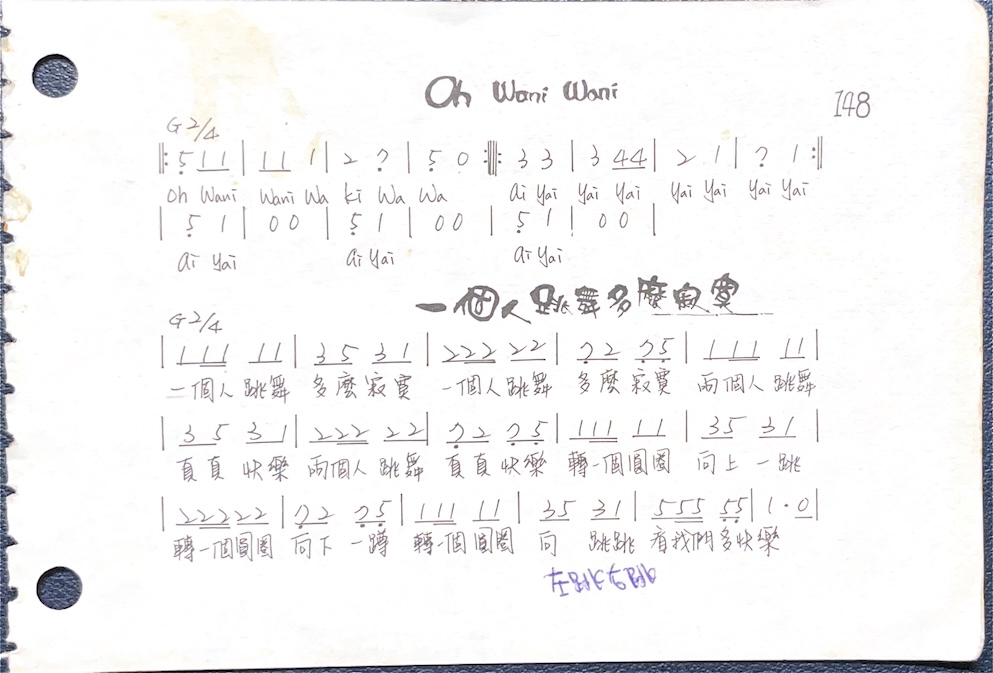 Oh Wani Wani
148
G 2/4
‖: 5̣ 1 1 | 1 1 1 | 2 7̣ | 5̣ 0 :‖: 3 3 | 3 4 4 | 2 1 | 7̣ 1 :‖
Oh Wani Wani Wa Ki Wa Wa Ai Yai Yai Yai Yai Yai Yai Yai
| 5̣ 1 | 0 0 | 5̣ 1 | 0 0 | 5̣ 1 | 0 0 |
Ai Yai Ai Yai Ai Yai
一個人跳舞多麼寂寞
G 2/4
| 1 1 1 1 1 | 3 5 3 1 | 2 2 2 2 2 | 7̣ 2 7̣ 5̣ | 1 1 1 1 1 |
一個人跳舞 多麼寂寞 一個人跳舞 多麼寂寞 兩個人跳舞
| 3 5 3 1 | 2 2 2 2 2 | 7̣ 2 7̣ 5̣ | 1 1 1 1 1 | 3 5 3 1 |
真真快樂 兩個人跳舞 真真快樂 轉一個圓圈 向上一跳
| 2 2 2 2 2 | 7̣ 2 7̣ 5̣ | 1 1 1 1 1 | 3 5 3 1 | 5 5 5 5̣ 5̣ | 1 · 0 |
轉一個圓圈 向下一蹲 轉一個圓圈 向 跳跳 看我們多快樂
左跳右跳